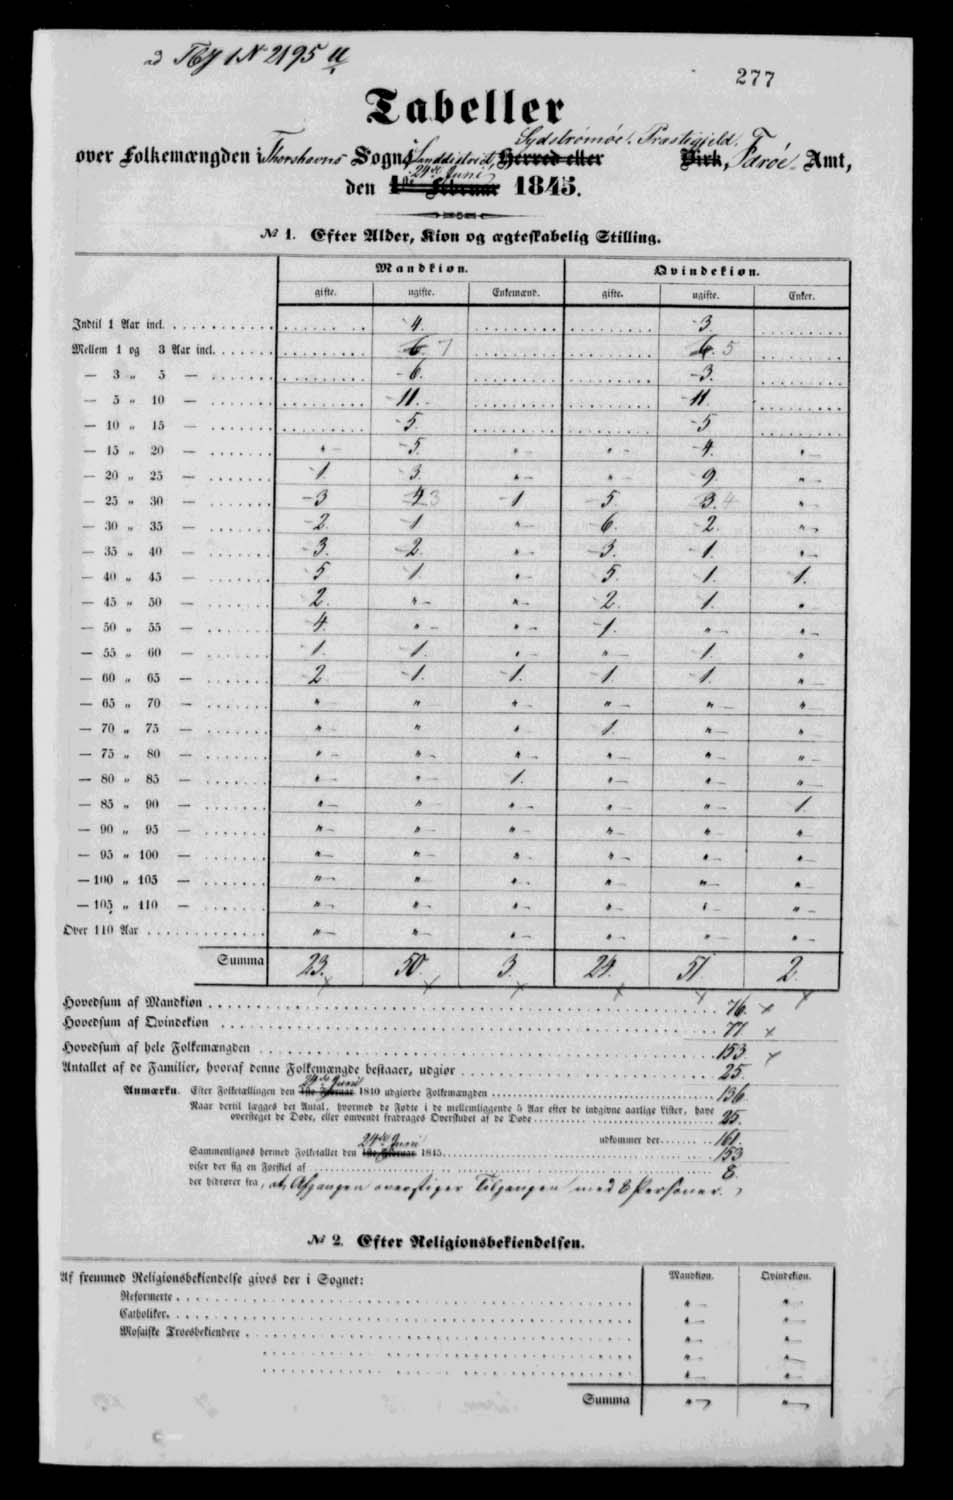 Fol 1 N 2195 u
277
Tabeller
Sydstrømøe Præstegjeld.
over Folkemængden i Thorshavns Sogns Landdistrict, Herred eller Birk, Færøe Amt,
24de Juni
den 1ste Februar 1845.
№ 1. Efter Alder, Kion og ægteskabelig Stilling.
Mandkion. Qvindekion.
gifte. ugifte. Enkemænd. gifte. ugifte. Enker.
Indtil 1 Aar incl. 4. 3.
Mellem 1 og 3 Aar incl. 6. 7 6. 5
— 3 „ 5 — 6. 3.
— 5 „ 10 — 11. 11.
— 10 „ 15 — 5. 5
— 15 „ 20 — „ 5. „ „ 4. „
— 20 „ 25 — 1. 3. „ „ 9. „
— 25 „ 30 — 3 4. 3 1 5 3. 4 „
— 30 „ 35 — 2. 1 „ 6. 2. „
— 35 „ 40 — 3. 2. „ 3. 1. „
— 40 „ 45 — 5 1. „ 5. 1. 1.
— 45 „ 50 — 2. „ „ 2. 1. „
— 50 „ 55 — 4. „ „ 1. „ „
— 55 „ 60 — 1. 1. „ „ 1. „
— 60 „ 65 — 2. 1. 1. 1. 1. „
— 65 „ 70 — „ „ „ „ „ „
— 70 „ 75 — „ „ „ 1. „ „
— 75 „ 80 — „ „ „ „ „ „
— 80 „ 85 — „ „ 1. „ „ „
— 85 „ 90 — „ „ „ „ „ 1.
— 90 „ 95 — „ „ „ „ „ „
— 95 „ 100 — „ „ „ „ „ „
— 100 „ 105 — „ „ „ „ „ „
— 105 „ 110 — „ „ „ „ „ „
Over 110 Aar „ „ „ „ „ „
Summa 23. 50. 3. 24. 51. 2.
Hovedsum af Mandkion 76.
Hovedsum af Qvindekion 77
Hovedsum af hele Folkemængden 153.
Antallet af de Familier, hvoraf denne Folkemængde bestaaer, udgiør 25.
24de Juni
Anmærkn. Efter Folketællingen den 1ste Februar 1840 udgiorde Folkemængden 136.
Naar dertil lægges det Antal, hvormed de Fødte i de mellemliggende 5 Aar efter de indgivne aarlige Lister, have
oversteget de Døde, eller omvendt fradrages Overskudet af de Døde 25.
24de Juni udkommer der 161.
Sammenlignes hermed Folketallet den 1ste Februar 1845 153
viser der sig en Forskiel af 8.
der hidrører fra, at Afgangen overstiger Tilgangen med 8 Personer.
№ 2. Efter Religionsbekiendelsen.
Af fremmed Religionsbekiendelse gives der i Sognet: Mandkion. Qvindekion.
Reformerte „ „
Catholiker. „ „
Mosaiske Troesbekiendere „ „
„ „
„ „
Summa „ „